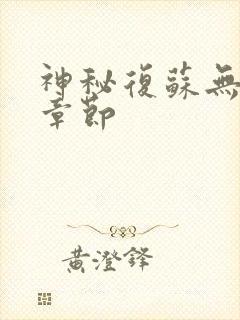 神秘復蘇無
章節
黃澄鋒